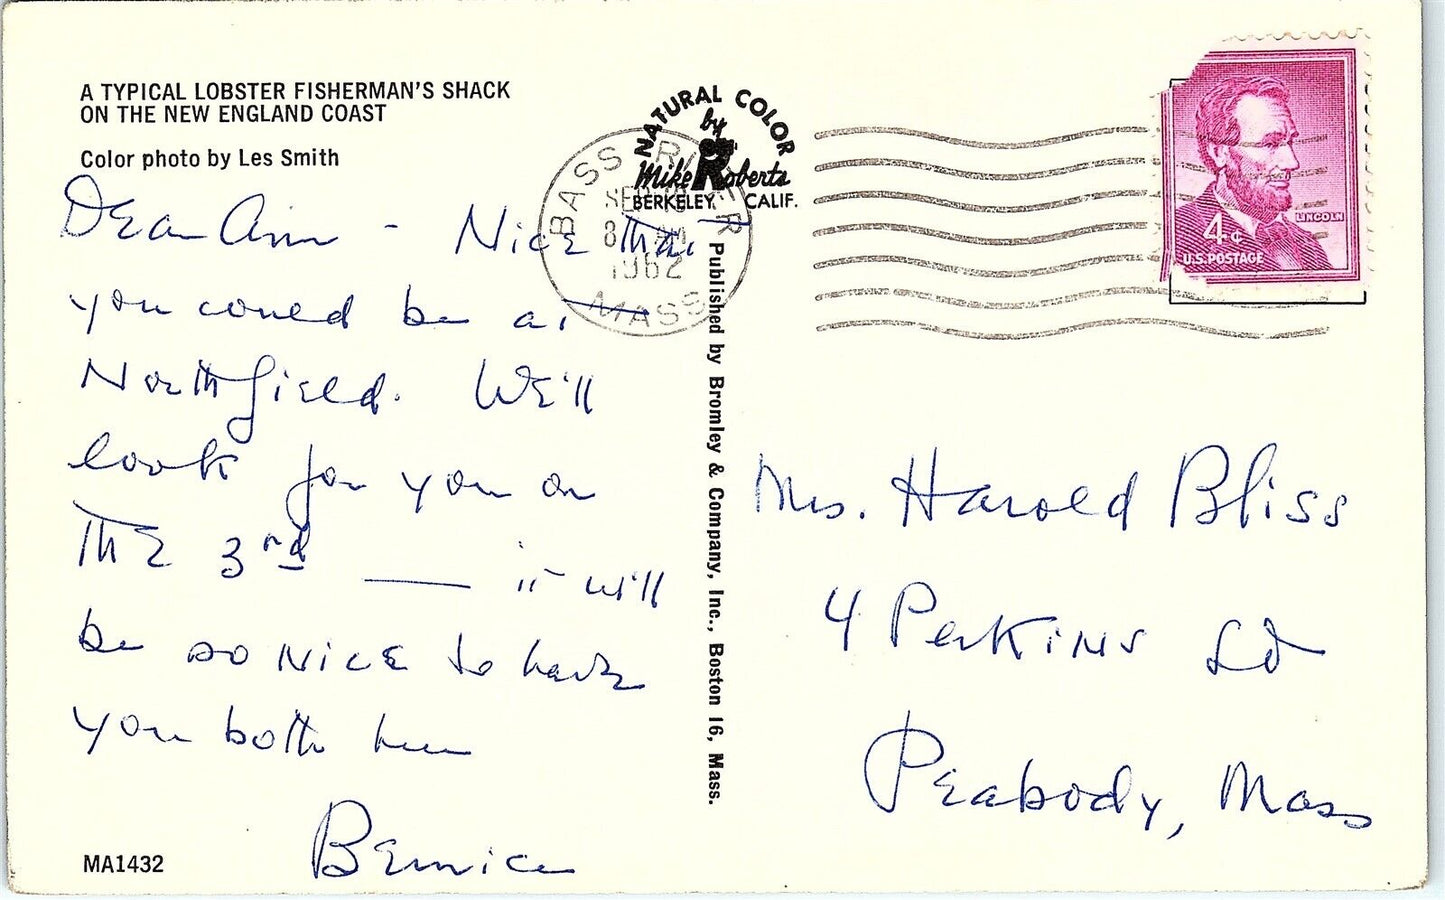 A TYPICAL LOBSTER FISHERMAN'S SHACK
ON THE NEW ENGLAND COAST
Color photo by Les Smith
Dear Ann - Nice that
you could be at
Northfield. We'll
look for you on
the 3rd — it will
be so nice to have
you both here
Bernice
MA1432
NATURAL COLOR
by
Mike Roberts
BERKELEY CALIF.
BASS RIVER
SEP
8 AM
1962
MASS
Published by Bromley & Company, Inc., Boston 16, Mass.
LINCOLN
4¢
U.S. POSTAGE
Mrs. Harold Bliss
4 Perkins
Peabody, Mass